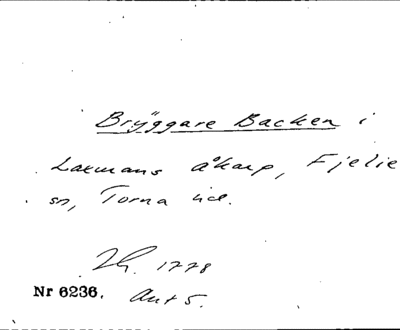 Brÿggare Backen i
Laxmans åkarp, Fjelie
sn, Torna hd.
1778
Nr 6236. Akt 5.